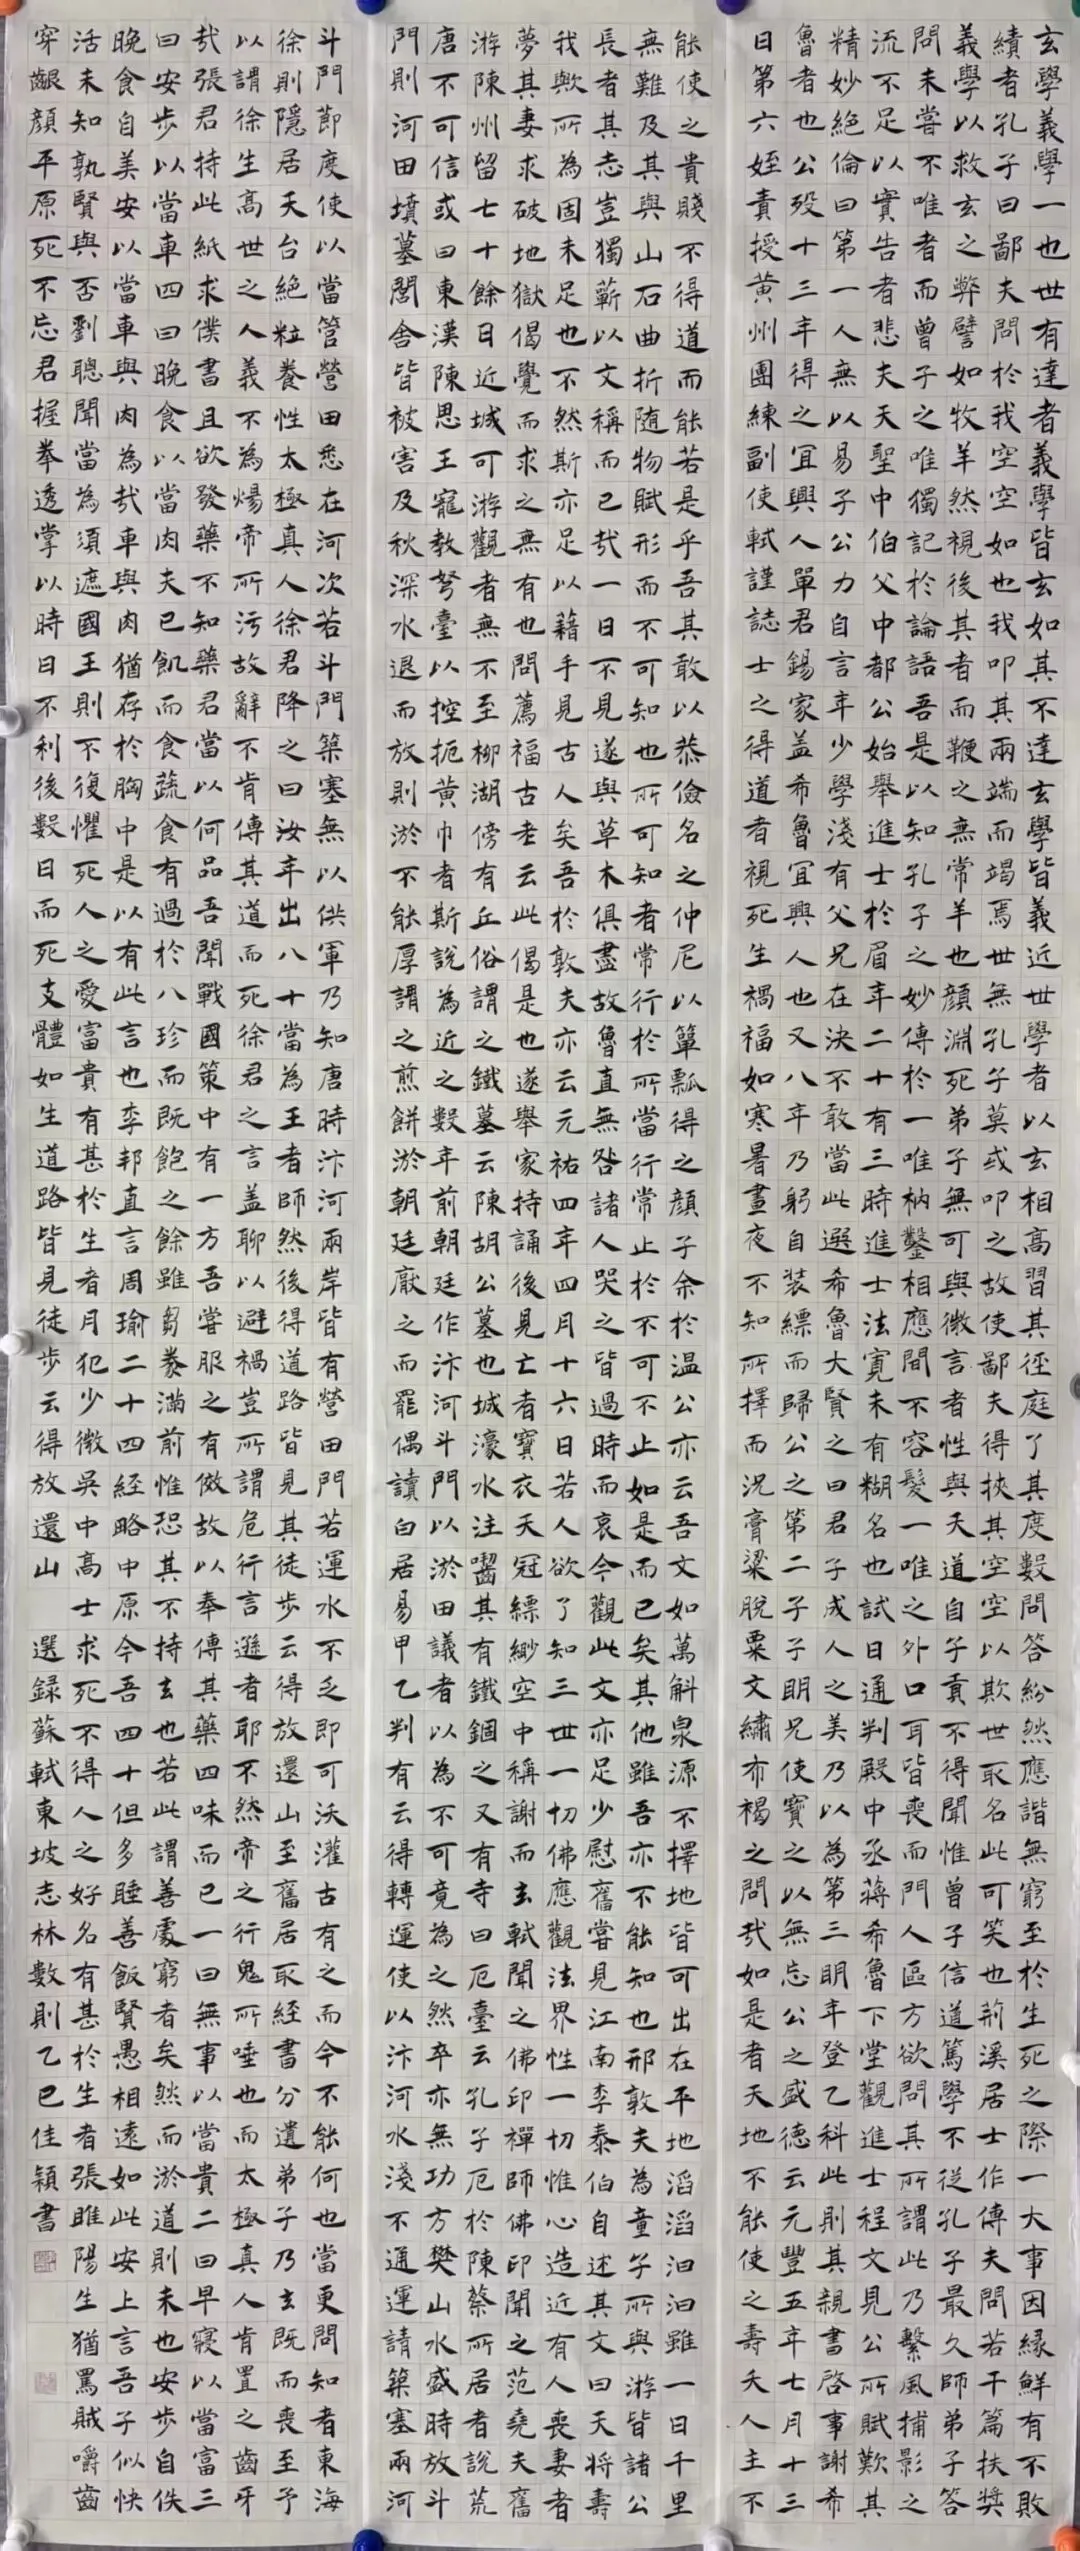 玄學義學一也世有達者義學皆玄如其不達玄學皆義近世學者以玄相高習其徑庭了其度數問答紛然應諧無窮至於生死之際一大事因緣鮮有不敗
績者孔子曰鄙夫問於我空空如也我叩其兩端而竭焉世無孔子莫或叩之故使鄙夫得挾其空空以欺世取名此可笑也荊溪居士作傳夫問若干篇扶獎
義學以救玄之弊譬如牧羊然視後其者而鞭之無常羊也顏淵死弟子無可與微言者性與天道自子貢不得聞惟曾子信道篤學不從孔子最久師弟子答
問未嘗不唯者而曾子之唯獨記於論語吾是以知孔子之妙傳於一唯枘鑿相應間不容髮一唯之外口耳皆喪而門人區方欲問其所謂此乃繫風捕影之
流不足以實告者悲夫天聖中伯父中都公始舉進士於眉年二十有三時進士法寬未有糊名也試日通判殿中丞蔣希魯下堂觀進士程文見公所賦歎其
精妙絕倫曰第一人無以易子公力自言年少學淺有父兄在決不敢當此選希魯大賢之曰君子成人之美乃以為第三明年登乙科此則其親書啓事謝希
魯者也公歿十三年得之宜興人單君錫家盖希魯宜興人也又八年乃躬自装縹而歸公之第二子子明兄使寶之以無忘公之盛德云元豐五年七月十三
日第六姪責授黃州團練副使軾謹誌士之得道者視死生禍福如寒暑晝夜不知所擇而況膏粱脫粟文繡布褐之問哉如是者天地不能使之壽夭人主不
能使之貴賤不得道而能若是乎吾其敢以恭儉名之仲尼以簞瓢得之顏子余於温公亦云吾文如萬斛泉源不擇地皆可出在平地滔滔汩汩雖一日千里
無難及其與山石曲折随物賦形而不可知也所可知者常行於所當行常止於不可不止如是而已矣其他雖吾亦不能知也邢敦夫為童子所與游皆諸公
長者其志豈獨蘄以文稱而已哉一日不見遂與草木俱盡故魯直無咎諸人哭之皆過時而哀今觀此文亦足少慰舊嘗見江南李泰伯自述其文曰天將壽
我歟所為固未足也不然斯亦足以藉手見古人矣吾於敦夫亦云元祐四年四月十六日若人欲了知三世一切佛應觀法界性一切惟心造近有人喪妻者
夢其妻求破地獄偈覺而求之無有也問薦福古老云此偈是也遂舉家持誦後見亡者寶衣天冠縹緲空中稱謝而去軾聞之佛印禪師佛印聞之范堯夫舊
游陳州留七十餘日近城可游觀者無不至柳湖傍有丘俗謂之鐵墓云陳胡公墓也城濠水注齧其有鐵錮之又有寺曰厄臺云孔子厄於陳蔡所居者說荒
唐不可信或曰東漢陳思王寵教弩臺以控扼黃巾者斯說為近之數年前朝廷作汴河斗門以淤田議者以為不可竟為之然卒亦無功方樊山水盛時放斗
門則河田墳墓閭舍皆被害及秋深水退而放則淤不能厚謂之煎餅淤朝廷厭之而罷偶讀白居易甲乙判有云得轉運使以汴河水淺不通運請築塞兩河
斗門節度使以當管營田悉在河次若斗門築塞無以供軍乃知唐時汴河兩岸皆有營田門若運水不乏即可沃灌古有之而今不能何也當更問知者東海
徐則隱居天台絕粒養性太極真人徐君降之曰汝年出八十當為王者師然後得道路皆見其徒步云得放還山至舊居取經書分遺弟子乃去既而喪至予
以謂徐生高世之人義不為煬帝所污故辭不肯傳其道而死徐君之言盖聊以避禍豈所謂危行言遜者耶不然帝之行鬼所唾也而太極真人肯置之齒牙
哉張君持此紙求僕書且欲發藥不知藥君當以何品吾聞戰國策中有一方吾嘗服之有傚故以奉傳其藥四味而已一曰無事以當貴二曰早寢以當富三
曰安步以當車四曰晚食以當肉夫已飢而食蔬食有過於八珍而既飽之餘雖芻豢滿前惟恐其不持去也若此謂善處窮者矣然而淤道則未也安步自佚
晚食自美安以當車與肉為哉車與肉猶存於胸中是以有此言也李邦直言周瑜二十四經略中原今吾四十但多睡善飯賢愚相遠如此安上言吾子似快
活未知孰賢與否劉聰聞當為須遮國王則不復懼死人之愛富貴有甚於生者月犯少微吳中高士求死不得人之好名有甚於生者張睢陽生猶罵賊嚼齒
穿齦顏平原死不忘君握拳透掌以時日不利後數日而死支體如生道路皆見徒步云得放還山 選録蘇軾東坡志林數則乙巳佳穎書